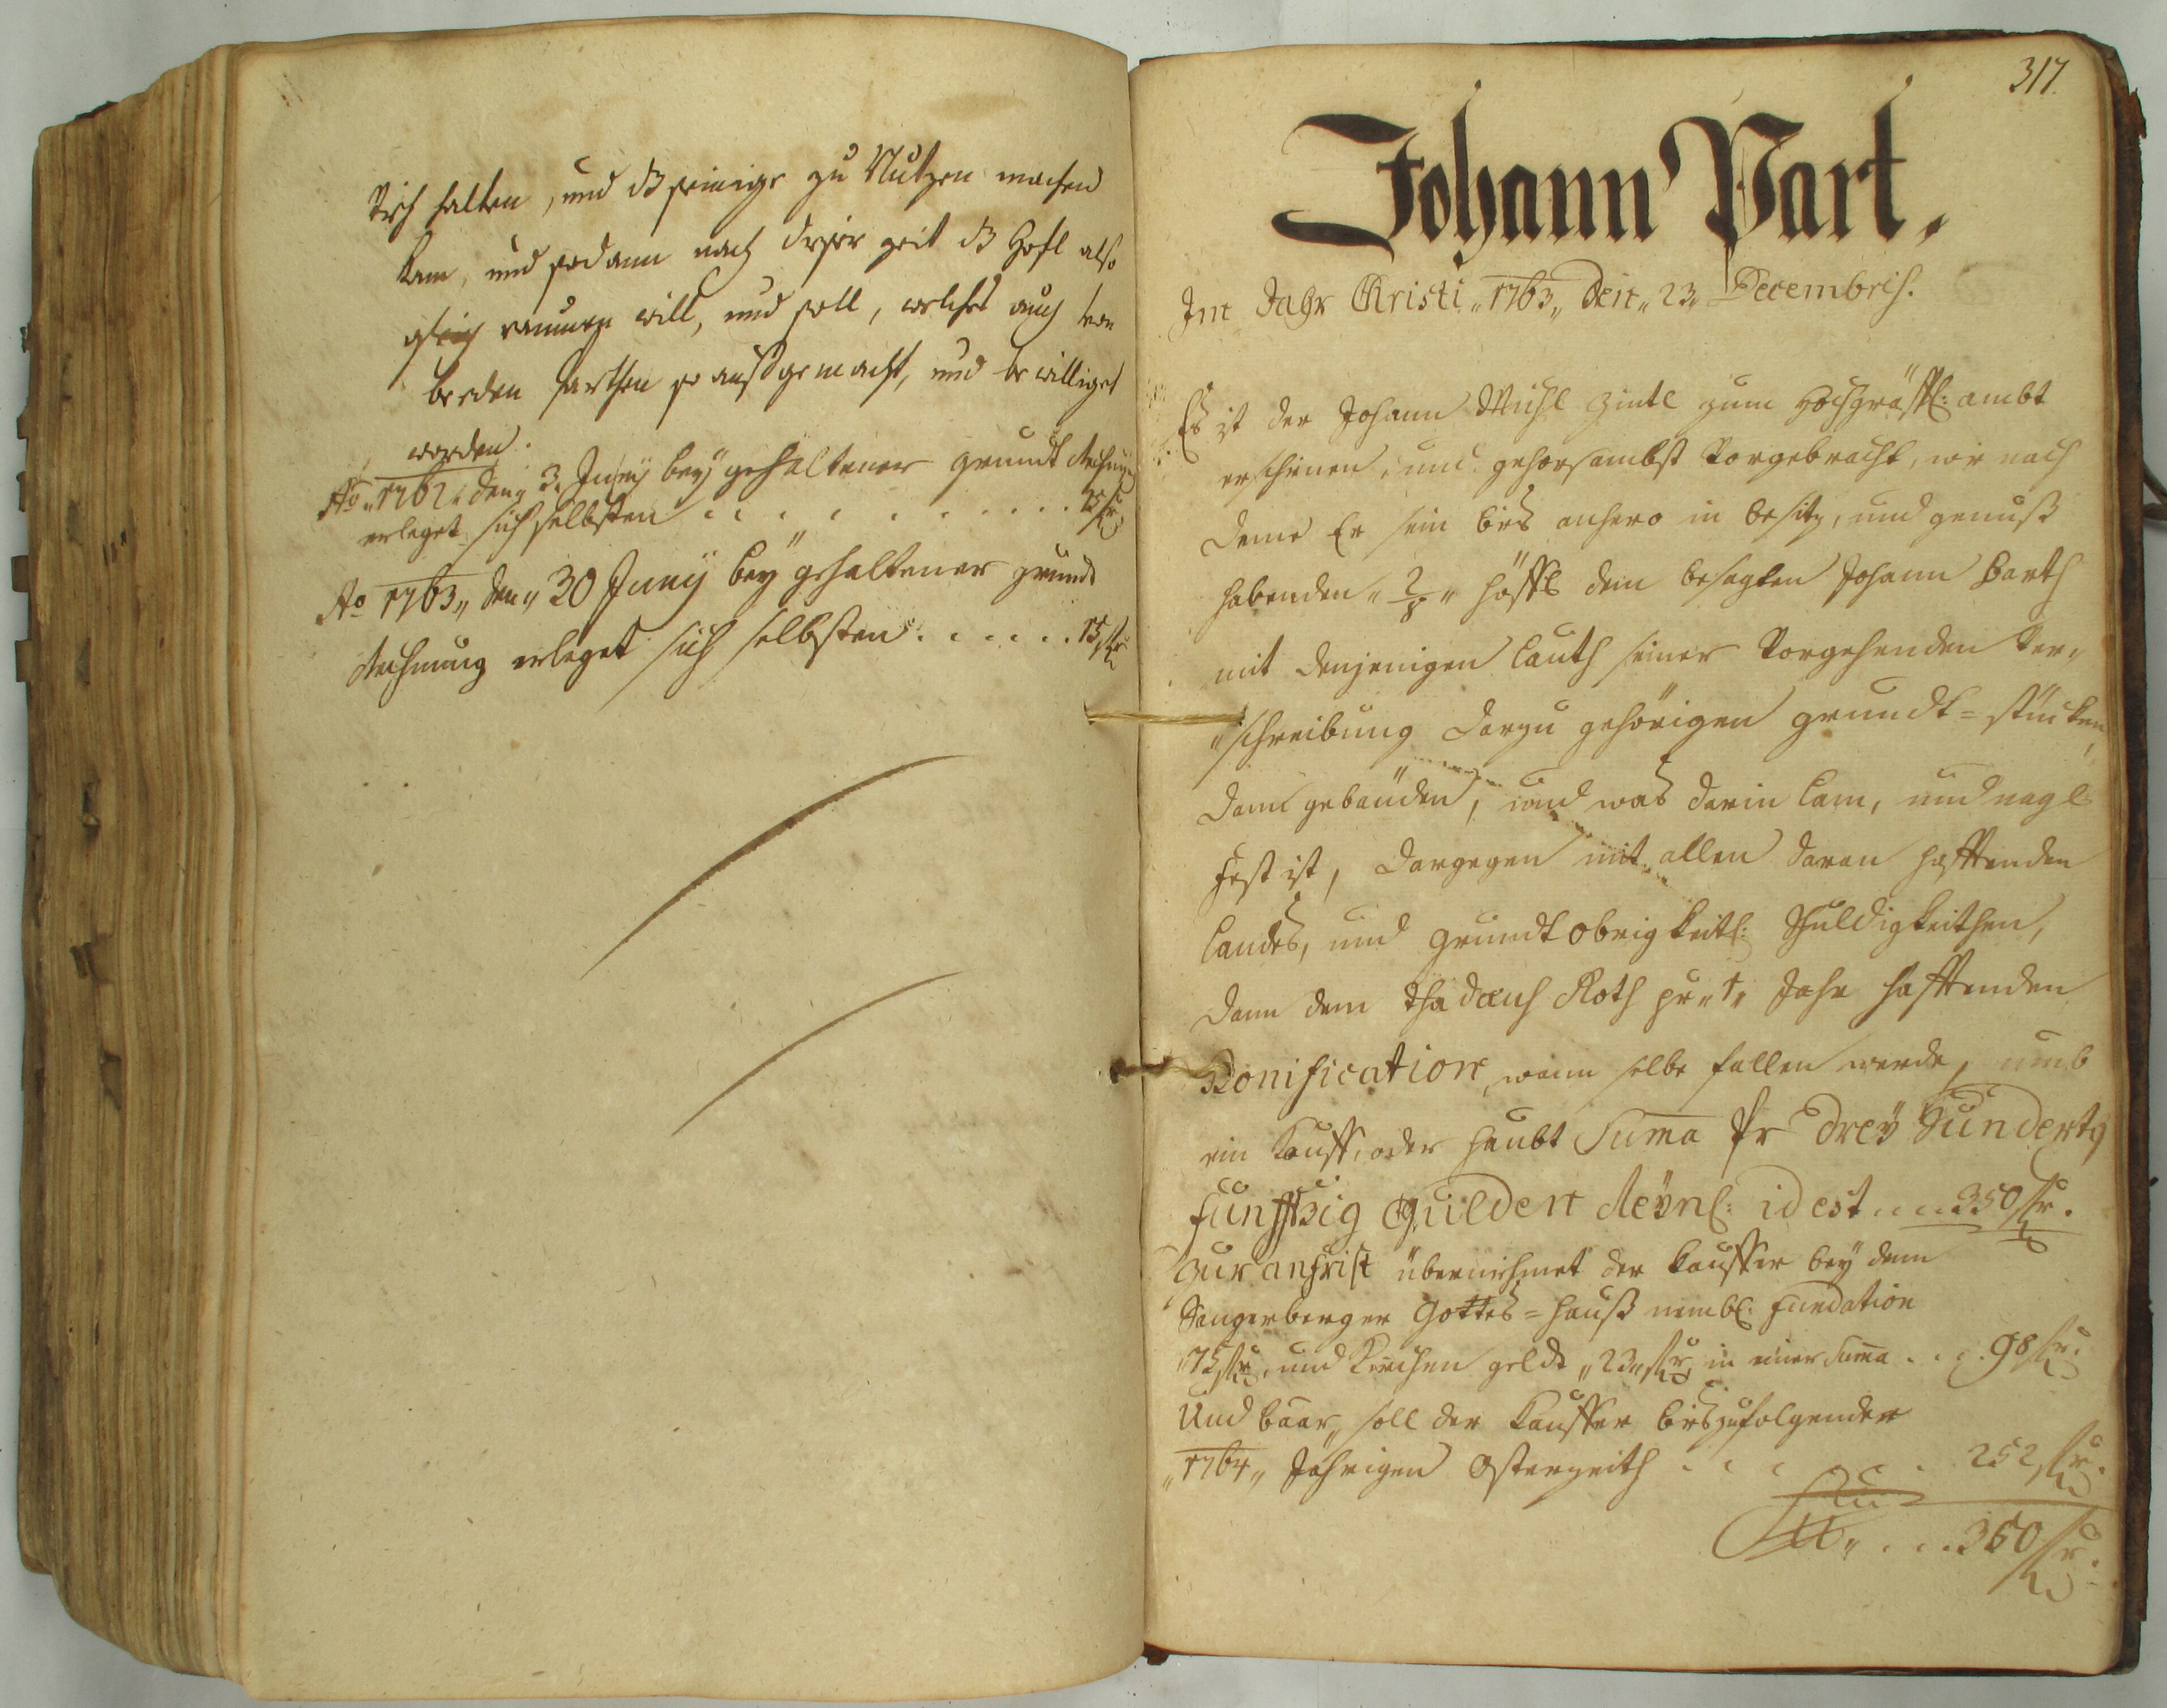 Vieh halten, und dß seinige zu Nutzen machen
kan, und sodann nach dieser zeit dß Höfl also
gleich raumen will, und soll, welches auch von
beeden parthen so außgemacht, und bewilliget
worden.
Ao 1762 den 3. Juny bey gehaltener grundt Rechnung
erleget sich selbsten . . . . . . . . . . 15 fr
Ao 1763,, den,, 30 Juny bey gehaltener grundt
Rechnung erleget sich selbsten . . . . . . 15 fr
317.
Johann Part.
Im Jahr Christi „1763„ den „23„ Decembris.
Es ist der Johann Mühl zum Hochgräffl: ambt
erschinen, und gehorsambst Vorgebracht, wie nach
deme Er sein bies anhero in besitz, und genuß
habenden „ 2/8 „ höffl dem besagten Johann Barth
mit denjenigen lauth seiner Vorgehenden Ver„
„schreibung darzu gehörigen grundt=stücken,
dann gebäuden, und was darin laim, und nagl
fest ist, dargegen mit allen daran hafftenden
landes, und grundtobrigkeitl: schuldigkeithen,
dann dem Thadæus Roth pr „1„ Jahr hafftenden
Bonification, wann selbe fallen werde, umb
ein kauff, oder haubt Suma pr Drey Hunderty
fünffzig gulden Reÿnl: id est . . . 350 fr.
Zur anfrist übernehmet der kauffer bey dem
Sangerberger Gottes=hauß nembl: fundation
„75 fr, und Kirchen geldt „23„ fr in einer Suma . . . 98 fr.
Und baar, soll der kauffer bieß zufolgender
„1764„ Jährigen Osterzeith . . . . . . 252 fr.
Su„ . . . 350 fr.